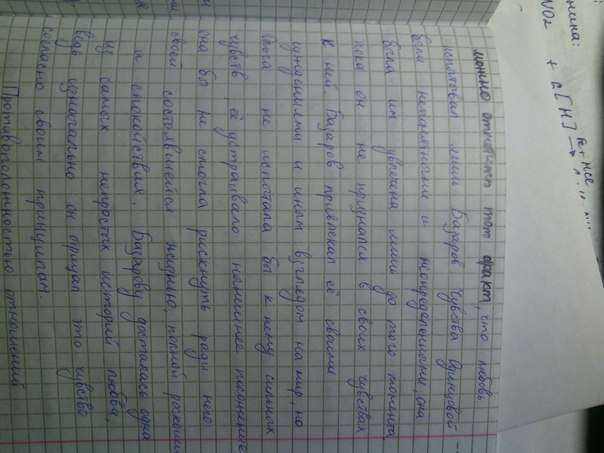 можно отметить тот факт, что любовь
испытывал лишь Базаров. Чувства Одинцовой
были непонятными и неопределенными, она
была им увлечена лишь до того момента
пока он не признался в своих чувствах
к ней. Базаров привлекал её своими
суждениями и иным взглядом на мир, но
Ольга не испытала бы к нему сильных
чувств её устраивало нынешнее положение
она бы не смогла рискнуть ради него
своей состоявшейся жизнью, полной роскоши
и спокойствия. Базарову досталась одна
из самых непростых историй любви,
ведь изначально он отрицал это чувство
согласно своим принципам.
Противоположностью отношений
нина:
NO2 + 6[H] Fe + HCl →